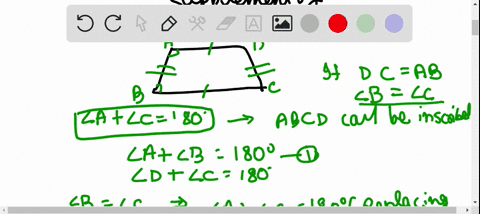 A D
B C
If DC = AB
∠B = ∠C
∠A + ∠C = 180° → ABCD can't be inscribed
∠A + ∠B = 180° — ①
∠D + ∠C = 180°
∠B = ∠C ⇒ ∠A + ∠C = 180° replacing